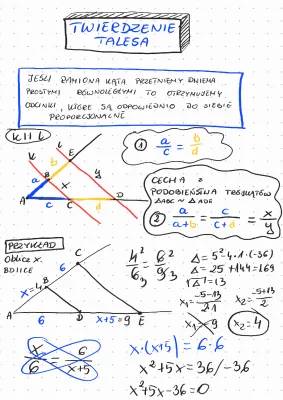 TWIERDZENIE
TALESA
JEŚLI RAMIONA KĄTA PRZETNIEMY DWIEMA
PROSTYMI RÓWNOLEGŁYMI TO OTRZYMUJEMY
ODCINKI, KTÓRE SĄ ODPOWIEDNIO DO SIEBIE
PROPORCJONALNE
K II L
k l
E
b
B
y
a
x
A c C d D
① a/c = b/d
CECHA 2
PODOBIEŃSTWA TRÓJKĄTÓW
△ABC ~ △ADE
② a/a+b = c/c+d = x/y
PRZYKŁAD
Oblicz x.
BD II CE
C
6
B
x=4
A 6 D x+5=9 E
4²/6₃ = 6²/9₃
Δ=5²-4·1·(-36)
Δ=25+144=169
√Δ=13
x₁=-5-13/2·1 x₂=-5+13/2
x₁=-9 x₂=4
x/6 = 6/x+5
x·(x+5)=6·6
x²+5x=36/-36
x²+5x-36=0